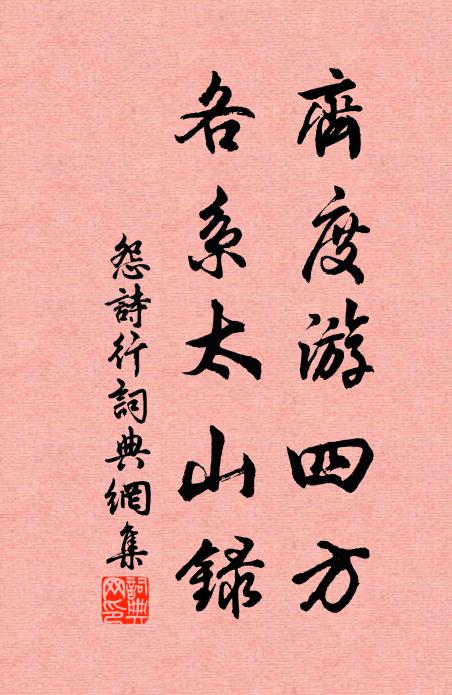 齊度游四方
各系太山錄
怨詩行詞典網集
詞典网印